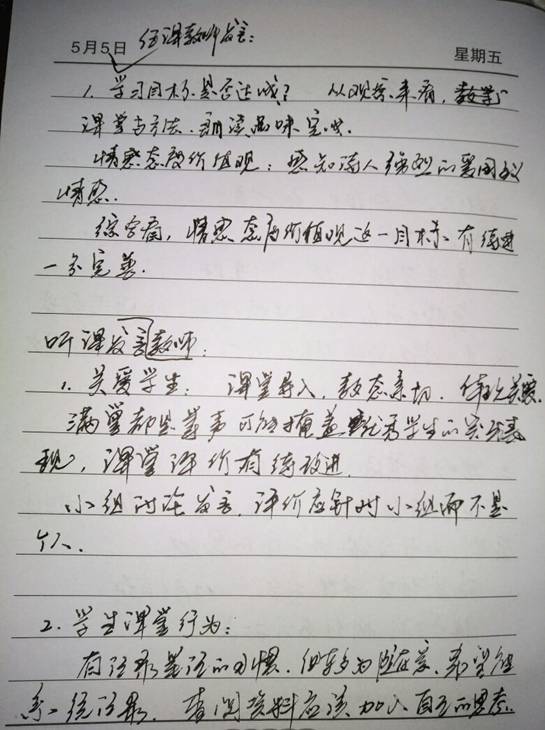 5月5日 任课教师发言:
星期五
1. 学习目标是否达成? 从观察来看,教学
课堂与方法、朗读品味完成.
情感态度价值观:感知诗人强烈的爱国
情感.
综合看,情感态度价值观这一目标有待进
一步完善.
听课发言教师:
1. 关爱学生: 课堂导入,教态亲切.
满堂都是掌声可能掩盖优秀学生的实际表
现,课堂评价有待改进.
小组讨论发言,评价应针对小组而不是
个人.
2. 学生课堂行为:
有记录笔记的习惯,但较为随意,希望能
系统记录,查阅资料应该加入自己的思考.